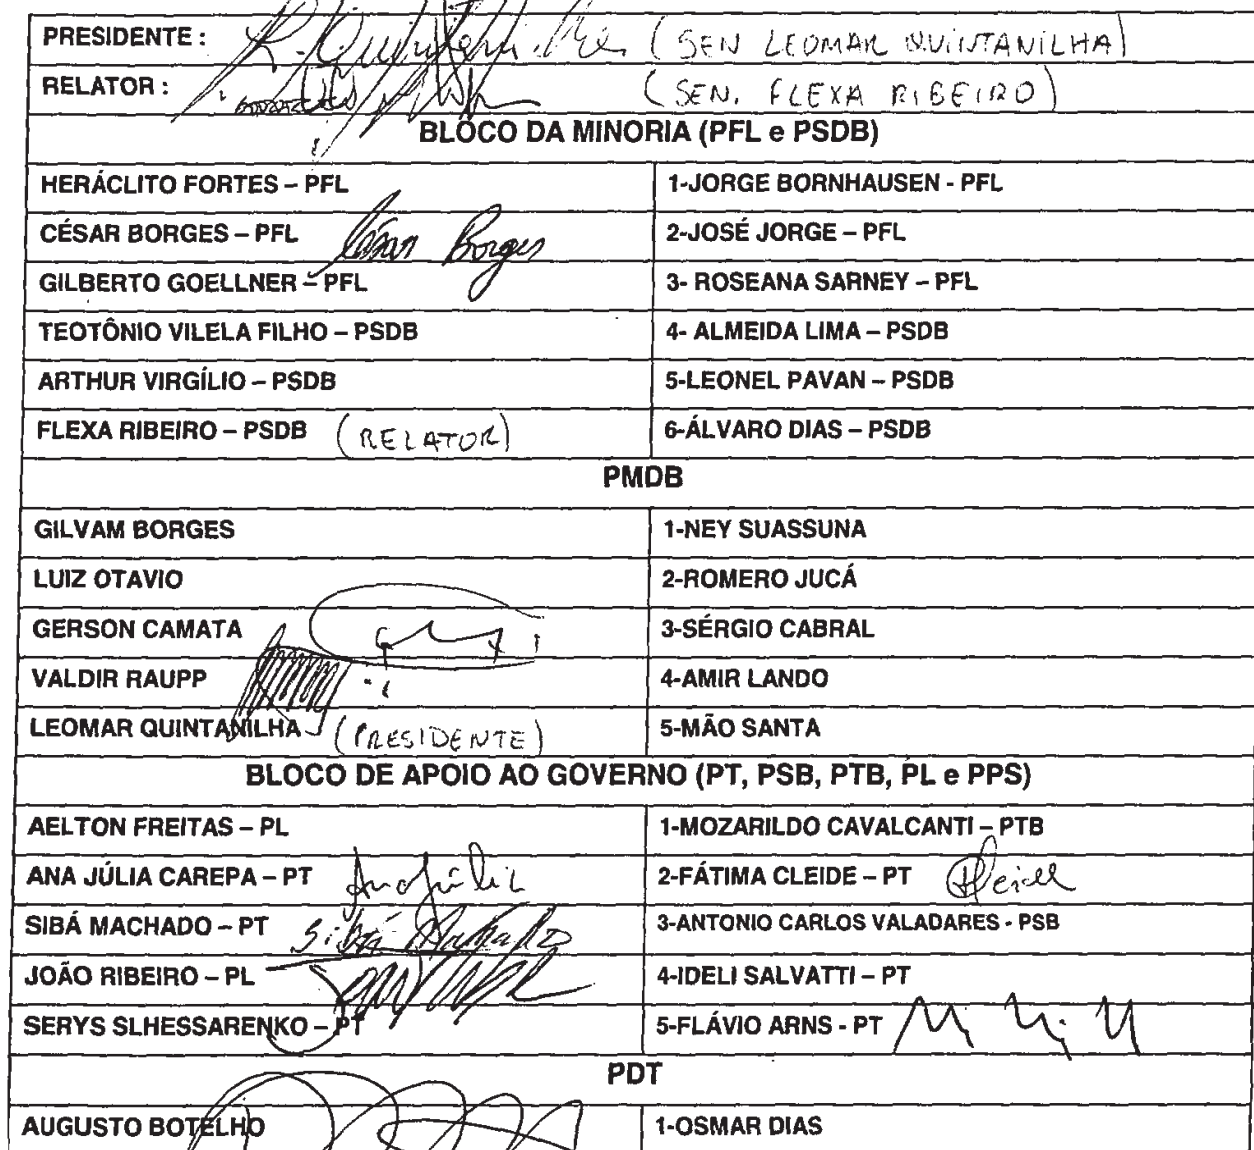 PRESIDENTE: (SEN LEOMAR QUINTANILHA)
RELATOR: (SEN. FLEXA RIBEIRO)
BLOCO DA MINORIA (PFL e PSDB)
HERÁCLITO FORTES – PFL 1-JORGE BORNHAUSEN - PFL
CÉSAR BORGES – PFL César Borges 2-JOSÉ JORGE – PFL
GILBERTO GOELLNER – PFL 3- ROSEANA SARNEY – PFL
TEOTÔNIO VILELA FILHO – PSDB 4- ALMEIDA LIMA – PSDB
ARTHUR VIRGÍLIO – PSDB 5-LEONEL PAVAN – PSDB
FLEXA RIBEIRO – PSDB (RELATOR) 6-ÁLVARO DIAS – PSDB
PMDB
GILVAM BORGES 1-NEY SUASSUNA
LUIZ OTAVIO 2-ROMERO JUCÁ
GERSON CAMATA 3-SÉRGIO CABRAL
VALDIR RAUPP 4-AMIR LANDO
LEOMAR QUINTANILHA (PRESIDENTE) 5-MÃO SANTA
BLOCO DE APOIO AO GOVERNO (PT, PSB, PTB, PL e PPS)
AELTON FREITAS – PL 1-MOZARILDO CAVALCANTI – PTB
ANA JÚLIA CAREPA – PT Ana Júlia 2-FÁTIMA CLEIDE – PT
SIBÁ MACHADO – PT Sibá Machado 3-ANTONIO CARLOS VALADARES - PSB
JOÃO RIBEIRO – PL 4-IDELI SALVATTI – PT
SERYS SLHESSARENKO – PT 5-FLÁVIO ARNS - PT
PDT
AUGUSTO BOTELHO 1-OSMAR DIAS